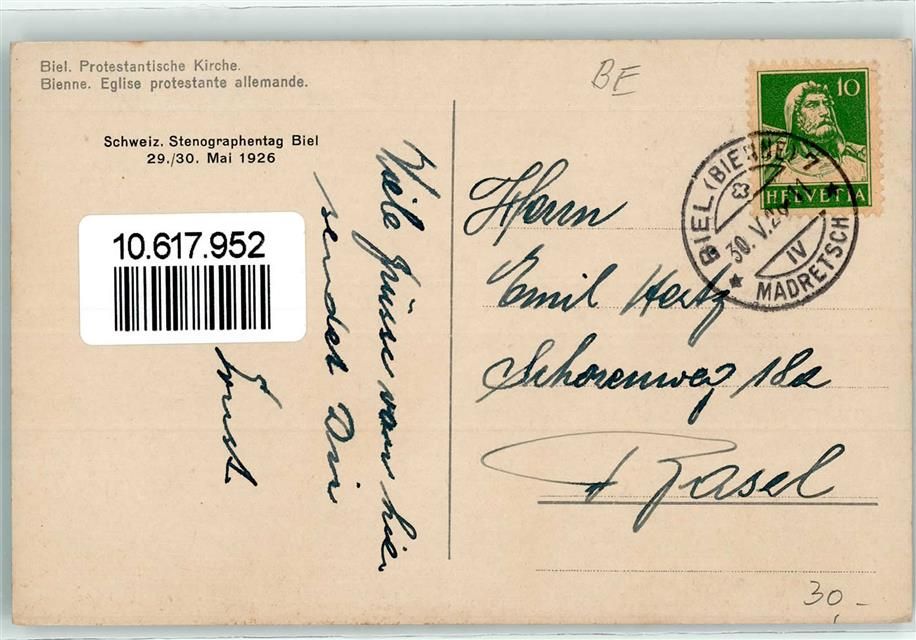 Biel. Protestantische Kirche.
Bienne. Eglise protestante allemande.
Schweiz. Stenographentag Biel
29./30. Mai 1926
10.617.952
Viele Grüsse von hier
sendet Dir
Ernst
BE
10
HELVETIA
BIEL (BIENNE) 7
30. V. 26
IV
* MADRETSCH *
Herrn
Emil Hertz
Schorenweg 18a
Basel
30,-